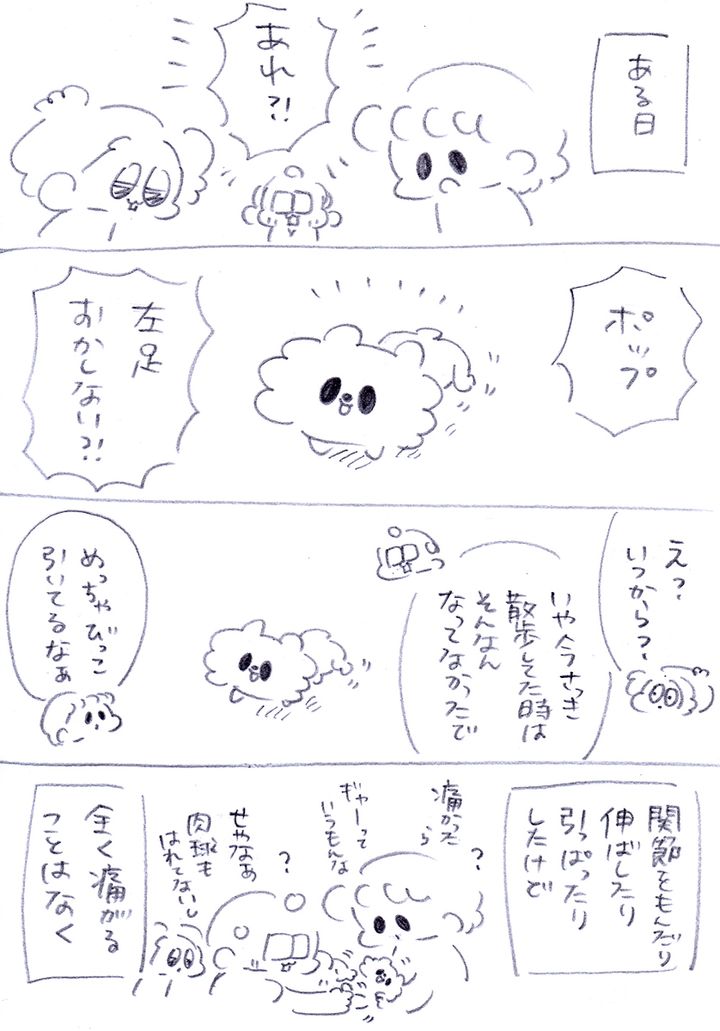 ある日
あれ?!
ポップ
左足
おかしない?!
えっ?
いつから?
いや今さっき
散歩してた時は
そんなん
なってなかったで
めっちゃびっこ
引いてるなぁ
関節をもんだり
伸ばしたり
引っぱったり
したけど
痛かった
ら
ギャーって
いうもんな
?
?
せやなぁ
肉球も
はれてないし
全く痛がる
ことはなく